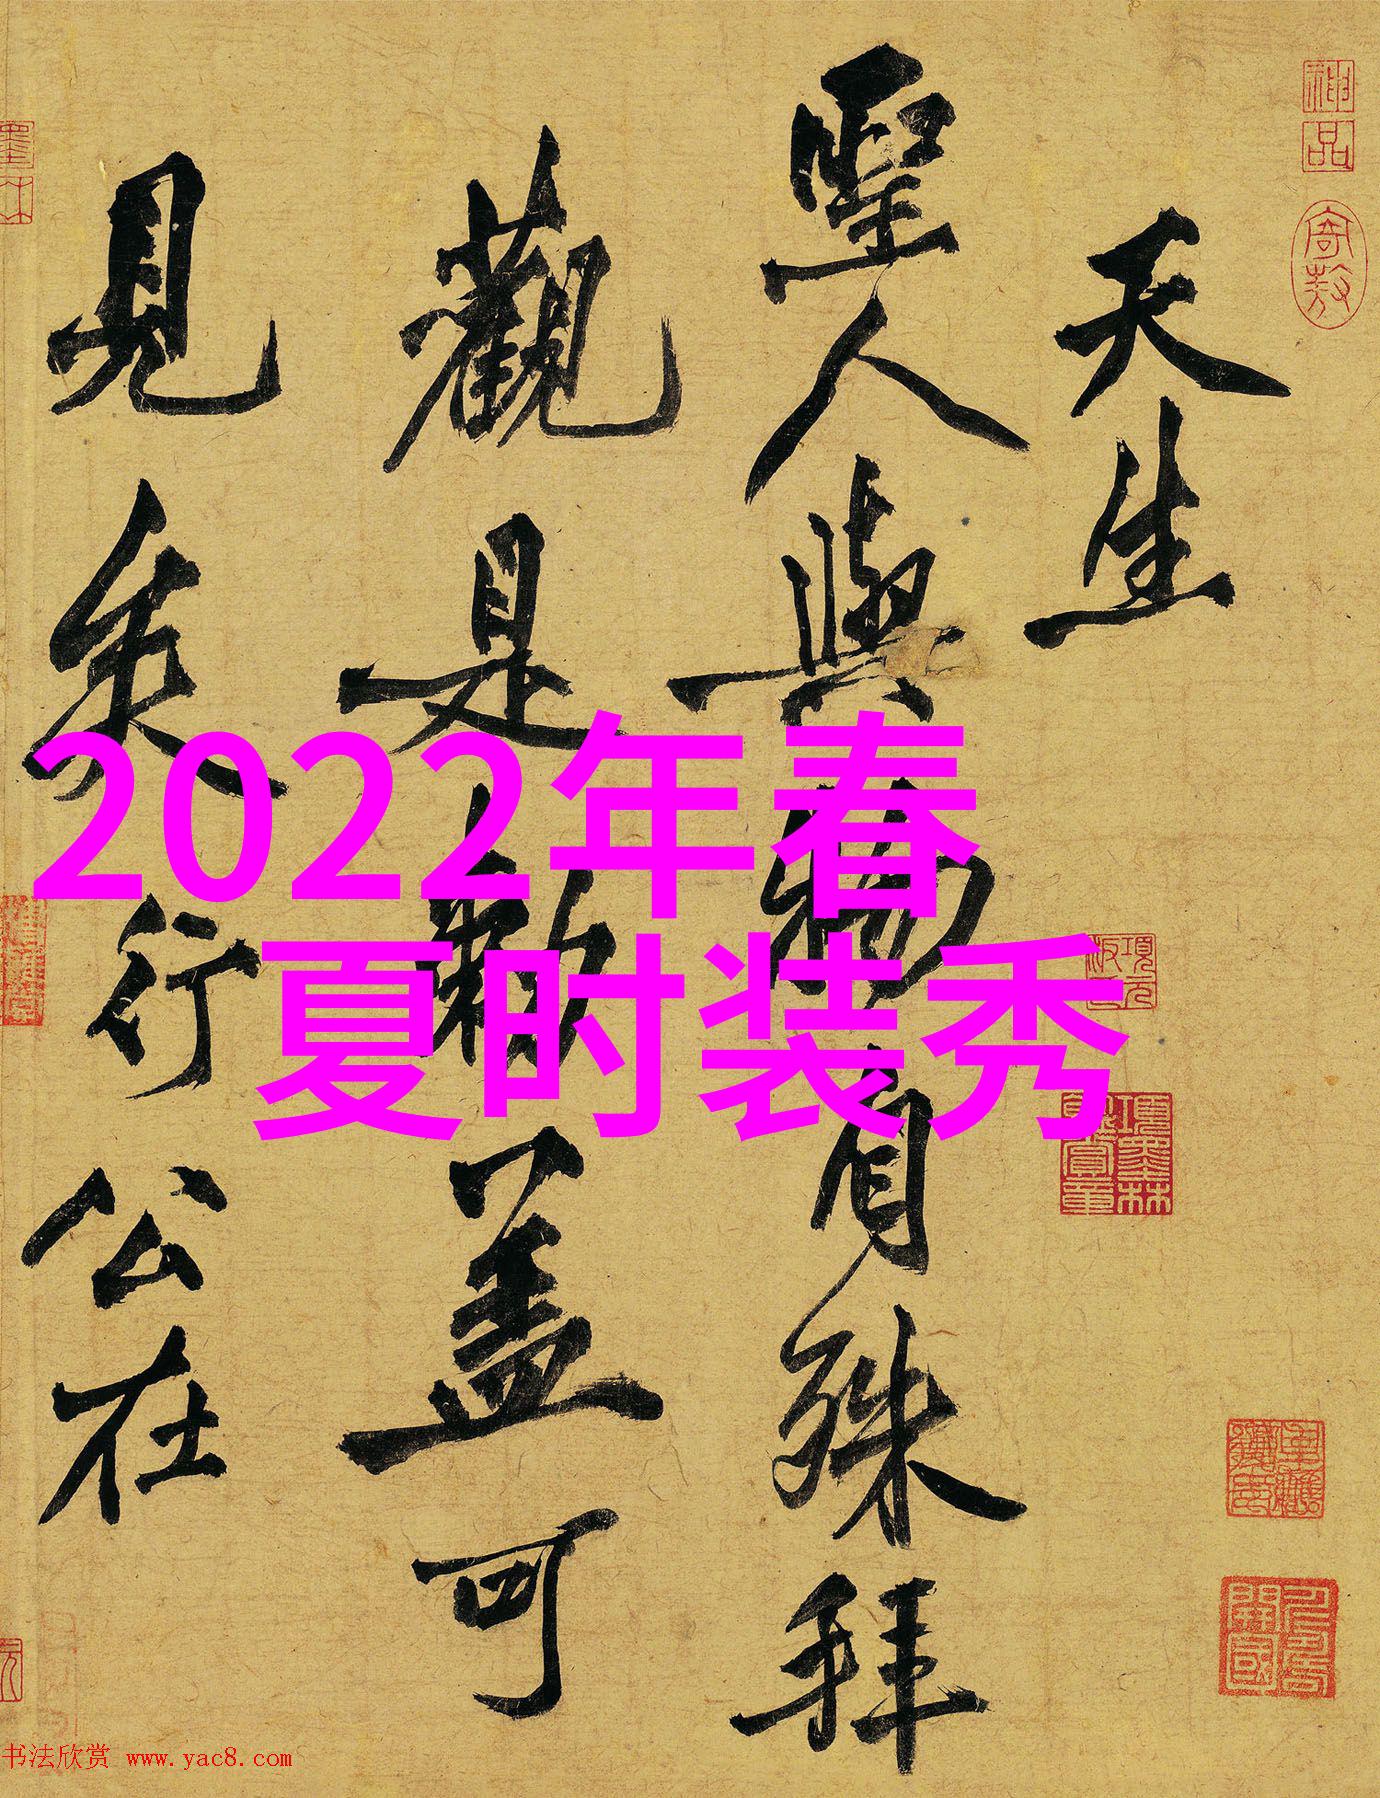 天生
聖人與物有殊拜
觀是盖可
見矣行公在
2022年春
夏时装秀
神品
书法欣赏 www.yac8.com